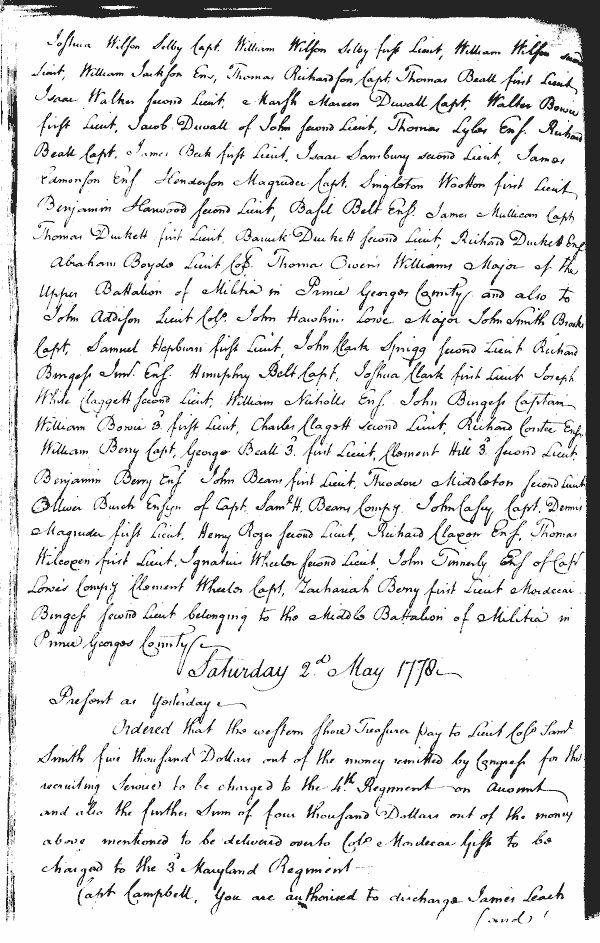 Joshua Wilson Selby Capt. William Wilson Selby first Lieut, William Wilson
Lieut, William Jackson Ens, Thomas Richardson Capt. Thomas Beall first Lieut,
Isaac Walker second Lieut, Marsh Mareen Duvall Capt. Walter Bowie
first Lieut, Jacob Duvall of John second Lieut, Thomas Lyles Ens. Richard
Beall Capt. James Beck first Lieut, Isaac Sansbury second Lieut, James
Edmonson Ens Henderson Magruder Capt. Singleton Wootton first Lieut
Benjamin Harwood second Lieut, Basil Belt Ens. James Mullican Capt
Thomas Duckett first Lieut, Baruck Duckett second Lieut, Richard Duckett Ens
Abraham Boyds Lieut Col. Thomas Owens Williams Major of the
Upper Battalion of Militia in Prince Georges County and also to
John Addison Lieut Col. John Hawkins Lowe Major John Smith Brooke
Capt, Samuel Hepburn first Lieut, John Clark Sprigg second Lieut Richard
Burgess Junr. Ens. Humphry Belt Capt, Joshua Clark first Lieut Joseph
White Claggett second Lieut William Nicholls Ens. John Burgess Captain
William Bowie 3. first Lieut, Charles Clagett second Lieut, Richard Contee Ens.
William Berry Capt, George Beall 3. first Lieut, Clement Hill 3. second Lieut
Benjamin Berry Ens John Beans first Lieut, Theodore Middleton second Lieut
Oliver Burch Ensign of Capt. Saml. H. Beans Compy. John Casey Capt. Dennis
Magruder first Lieut. Henry Rozer second Lieut, Richard Claxon Ens, Thomas
Wilcoxen first Lieut, Ignatius Wheeler second Lieut, John Tennerly Ens of Capt
Lowes Compy Clement Wheeler Capt, Zachariah Berry first Lieut Mordecai
Burgess second Lieut belonging to the Middle Battalion of Militia in
Prince Georges County
Saturday 2d. May 1778
Present as Yesterday
Ordered that the western shore Treasurer pay to Lieut Colo. Saml.
Smith five thousand Dollars out of the money remitted by Congress for the
recruiting Service to be charged to the 4th. Regiment on Account
and also the further Sum of four thousand Dollars out of the money
above mentioned to be delivered over to Colo. Mordecai Gist to be
charged to the 3d Maryland Regiment
Capt Campbell, You are authorised to discharge James Leach
(and)